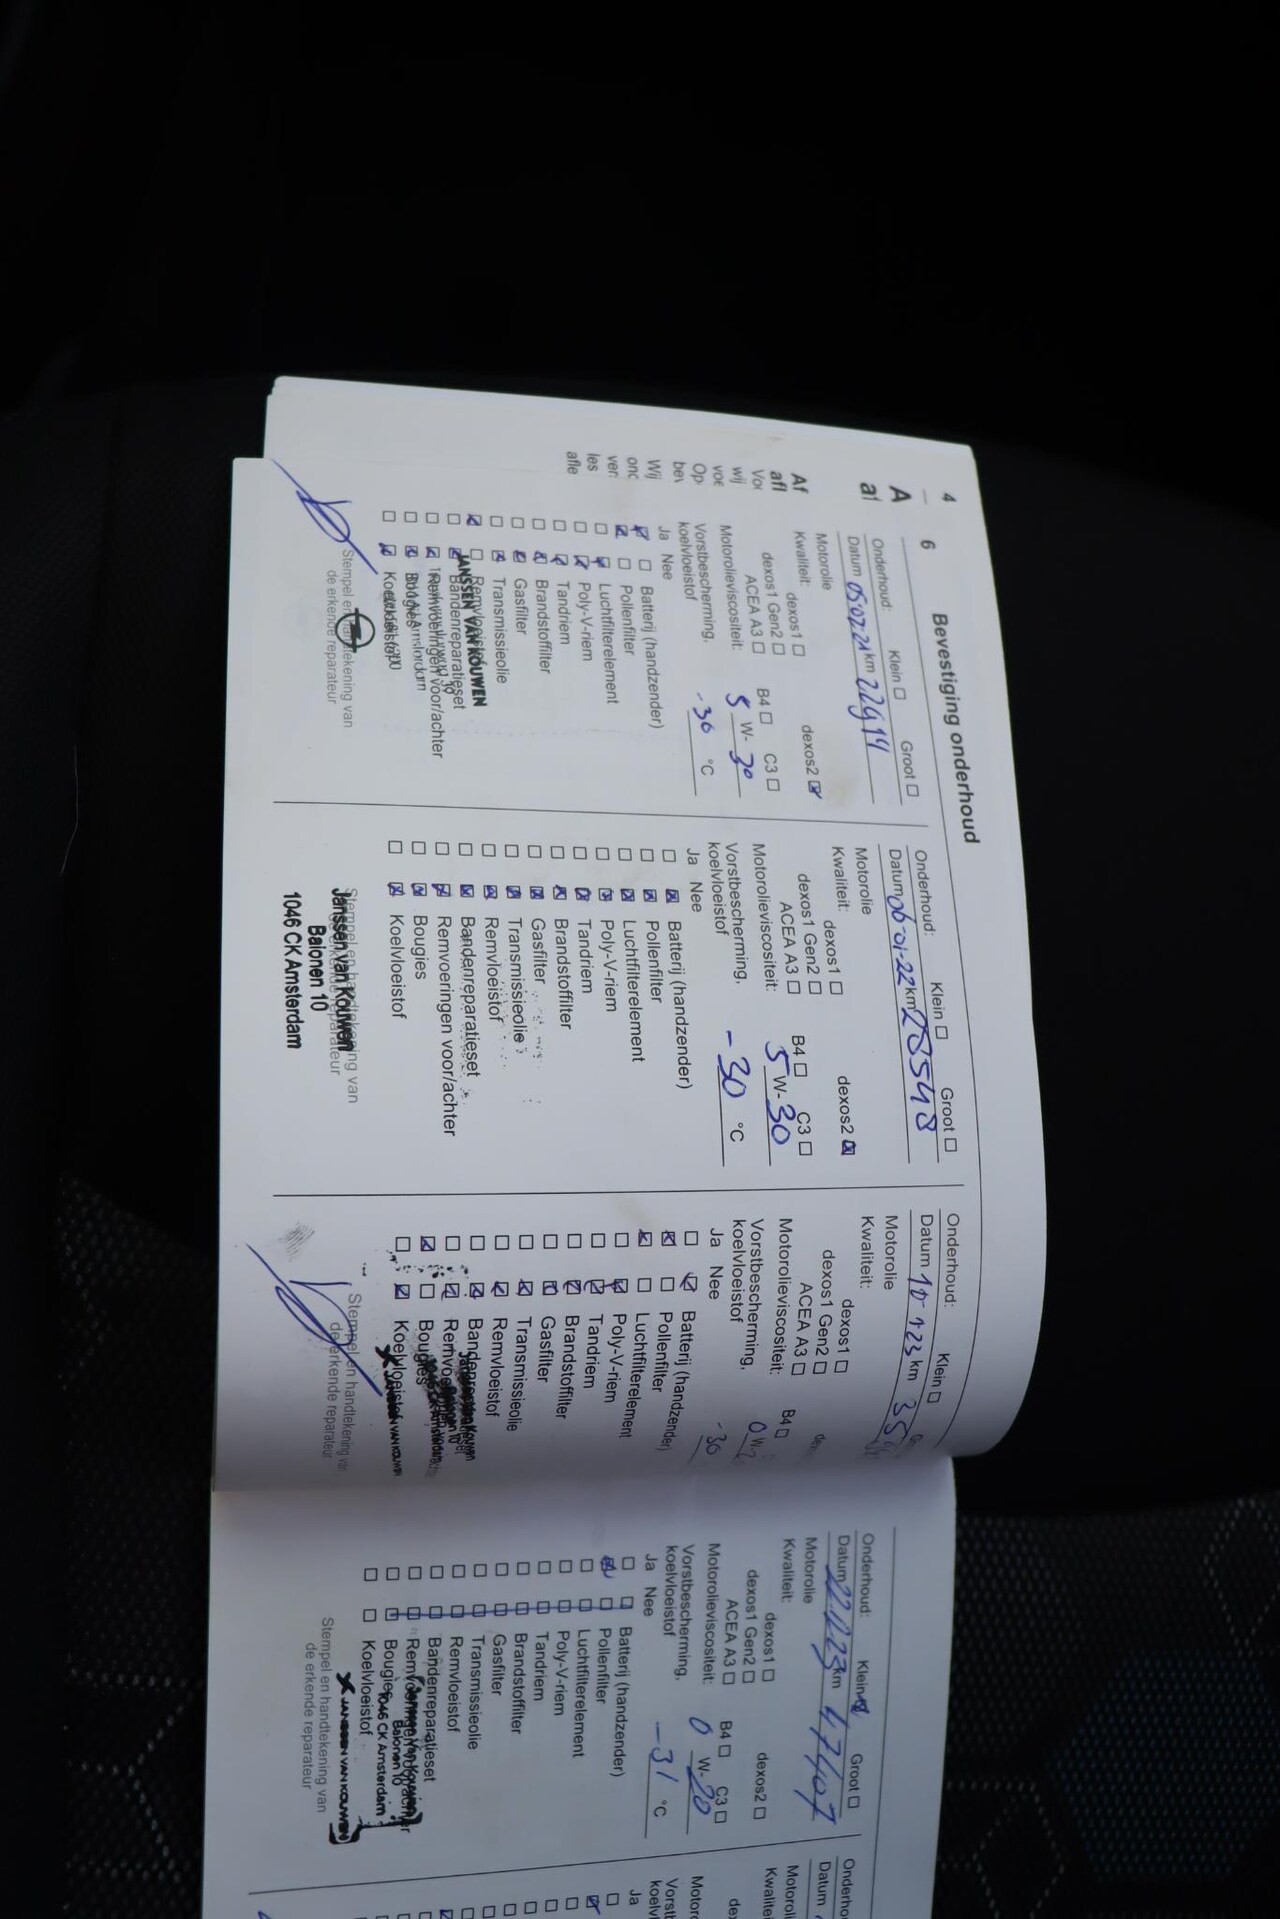 4
A
af
Af
afl
Voo
wij
voe
Op
bev
Wij
ond
ver
les
afle
6
Bevestiging onderhoud
Onderhoud: Klein Groot
Datum 05.07.21 km 22914
Motorolie
Kwaliteit: dexos1 dexos2
dexos1 Gen2
ACEA A3 B4 C3
Motorolieviscositeit: 5 W- 30
Vorstbescherming,
koelvloeistof -30 °C
Ja Nee
Batterij (handzender)
Pollenfilter
Luchtfilterelement
Poly-V-riem
Tandriem
Brandstoffilter
Gasfilter
Transmissieolie
Remvloeistof
JANSSEN VAN KOUWEN
Bandenreparatieset
Remvoeringen voor/achter
Bougies
Koelvloeistof
Stempel en handtekening van
de erkende reparateur
Onderhoud: Klein Groot
Datum 06-01-22 km 28548
Motorolie
Kwaliteit: dexos1 dexos2
dexos1 Gen2
ACEA A3 B4 C3
Motorolieviscositeit: 5 W- 30
Vorstbescherming,
koelvloeistof -30 °C
Ja Nee
Batterij (handzender)
Pollenfilter
Luchtfilterelement
Poly-V-riem
Tandriem
Brandstoffilter
Gasfilter
Transmissieolie
Remvloeistof
Bandenreparatieset
Remvoeringen voor/achter
Bougies
Koelvloeistof
Stempel en handtekening van
de erkende reparateur
Janssen van Kouwen
Balonen 10
1046 CK Amsterdam
Onderhoud: Klein
Datum km 35
Motorolie
Kwaliteit: dexos1
dexos1 Gen2
ACEA A3 B4
Motorolieviscositeit: 0 W-
Vorstbescherming,
koelvloeistof -30
Ja Nee
Batterij (handzender)
Pollenfilter
Luchtfilterelement
Poly-V-riem
Tandriem
Brandstoffilter
Gasfilter
Transmissieolie
Remvloeistof
Bandenreparatieset
Bougies
Koelvloeistof
JANSSEN VAN KOUWEN
Stempel en handtekening van
de erkende reparateur
Onderhoud: Klein Groot
Datum km 47407
Motorolie
Kwaliteit: dexos1 dexos2
dexos1 Gen2
ACEA A3 B4 C3
Motorolieviscositeit: 0 W- 20
Vorstbescherming,
koelvloeistof -31 °C
Ja Nee
Batterij (handzender)
Pollenfilter
Luchtfilterelement
Poly-V-riem
Tandriem
Brandstoffilter
Gasfilter
Transmissieolie
Remvloeistof
Bandenreparatieset
Bougies
Koelvloeistof
Janssen Van Kouwen
Balonen 10
1046 CK Amsterdam
JANSSEN VAN KOUWEN
Stempel en handtekening van
de erkende reparateur
Onderho
Datum
Motoroli
Kwalitei
de
Motoro
Vorst
koelv
Ja